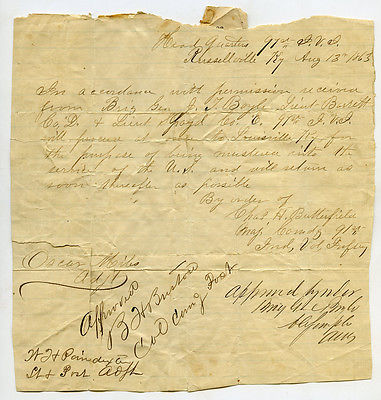 Head Quarters 91st I. V. I.
Russellville Ky Aug 13th 1863
In accordance with permission received
from Brig Gen J. T. Boyle Lieut Barrett
Co D. & Lieut Co. C. 91st I. V. I.
will proceed at once to Louisville Ky for
the purpose of being mustered into the
service of the U. S. and will return as
soon thereafter as possible
By order of
Chas. H. Butterfield
Maj Comdg 91st
Ind. Vol Infty
Oscar
Adjt
Approved
B H Bristow
Col Comg Post
W H Poindexter
Lt & Post Adjt
Approved by order